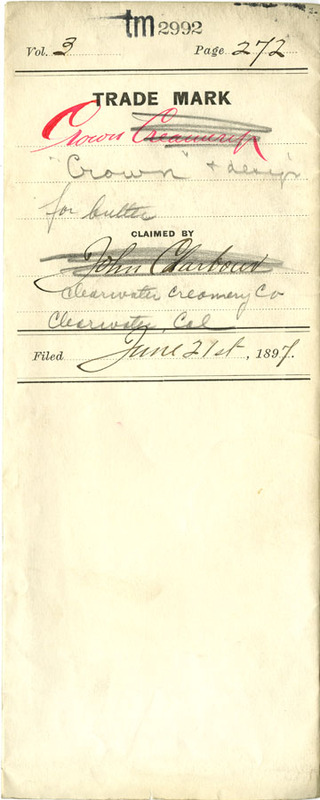 tm 2992
Vol. 3 Page 272
TRADE MARK
Crown Creamery
"Crown" + design
for butter
CLAIMED BY
John
Clearwater Creamery Co
Clearwater, Cal
Filed June 21st, 1897.